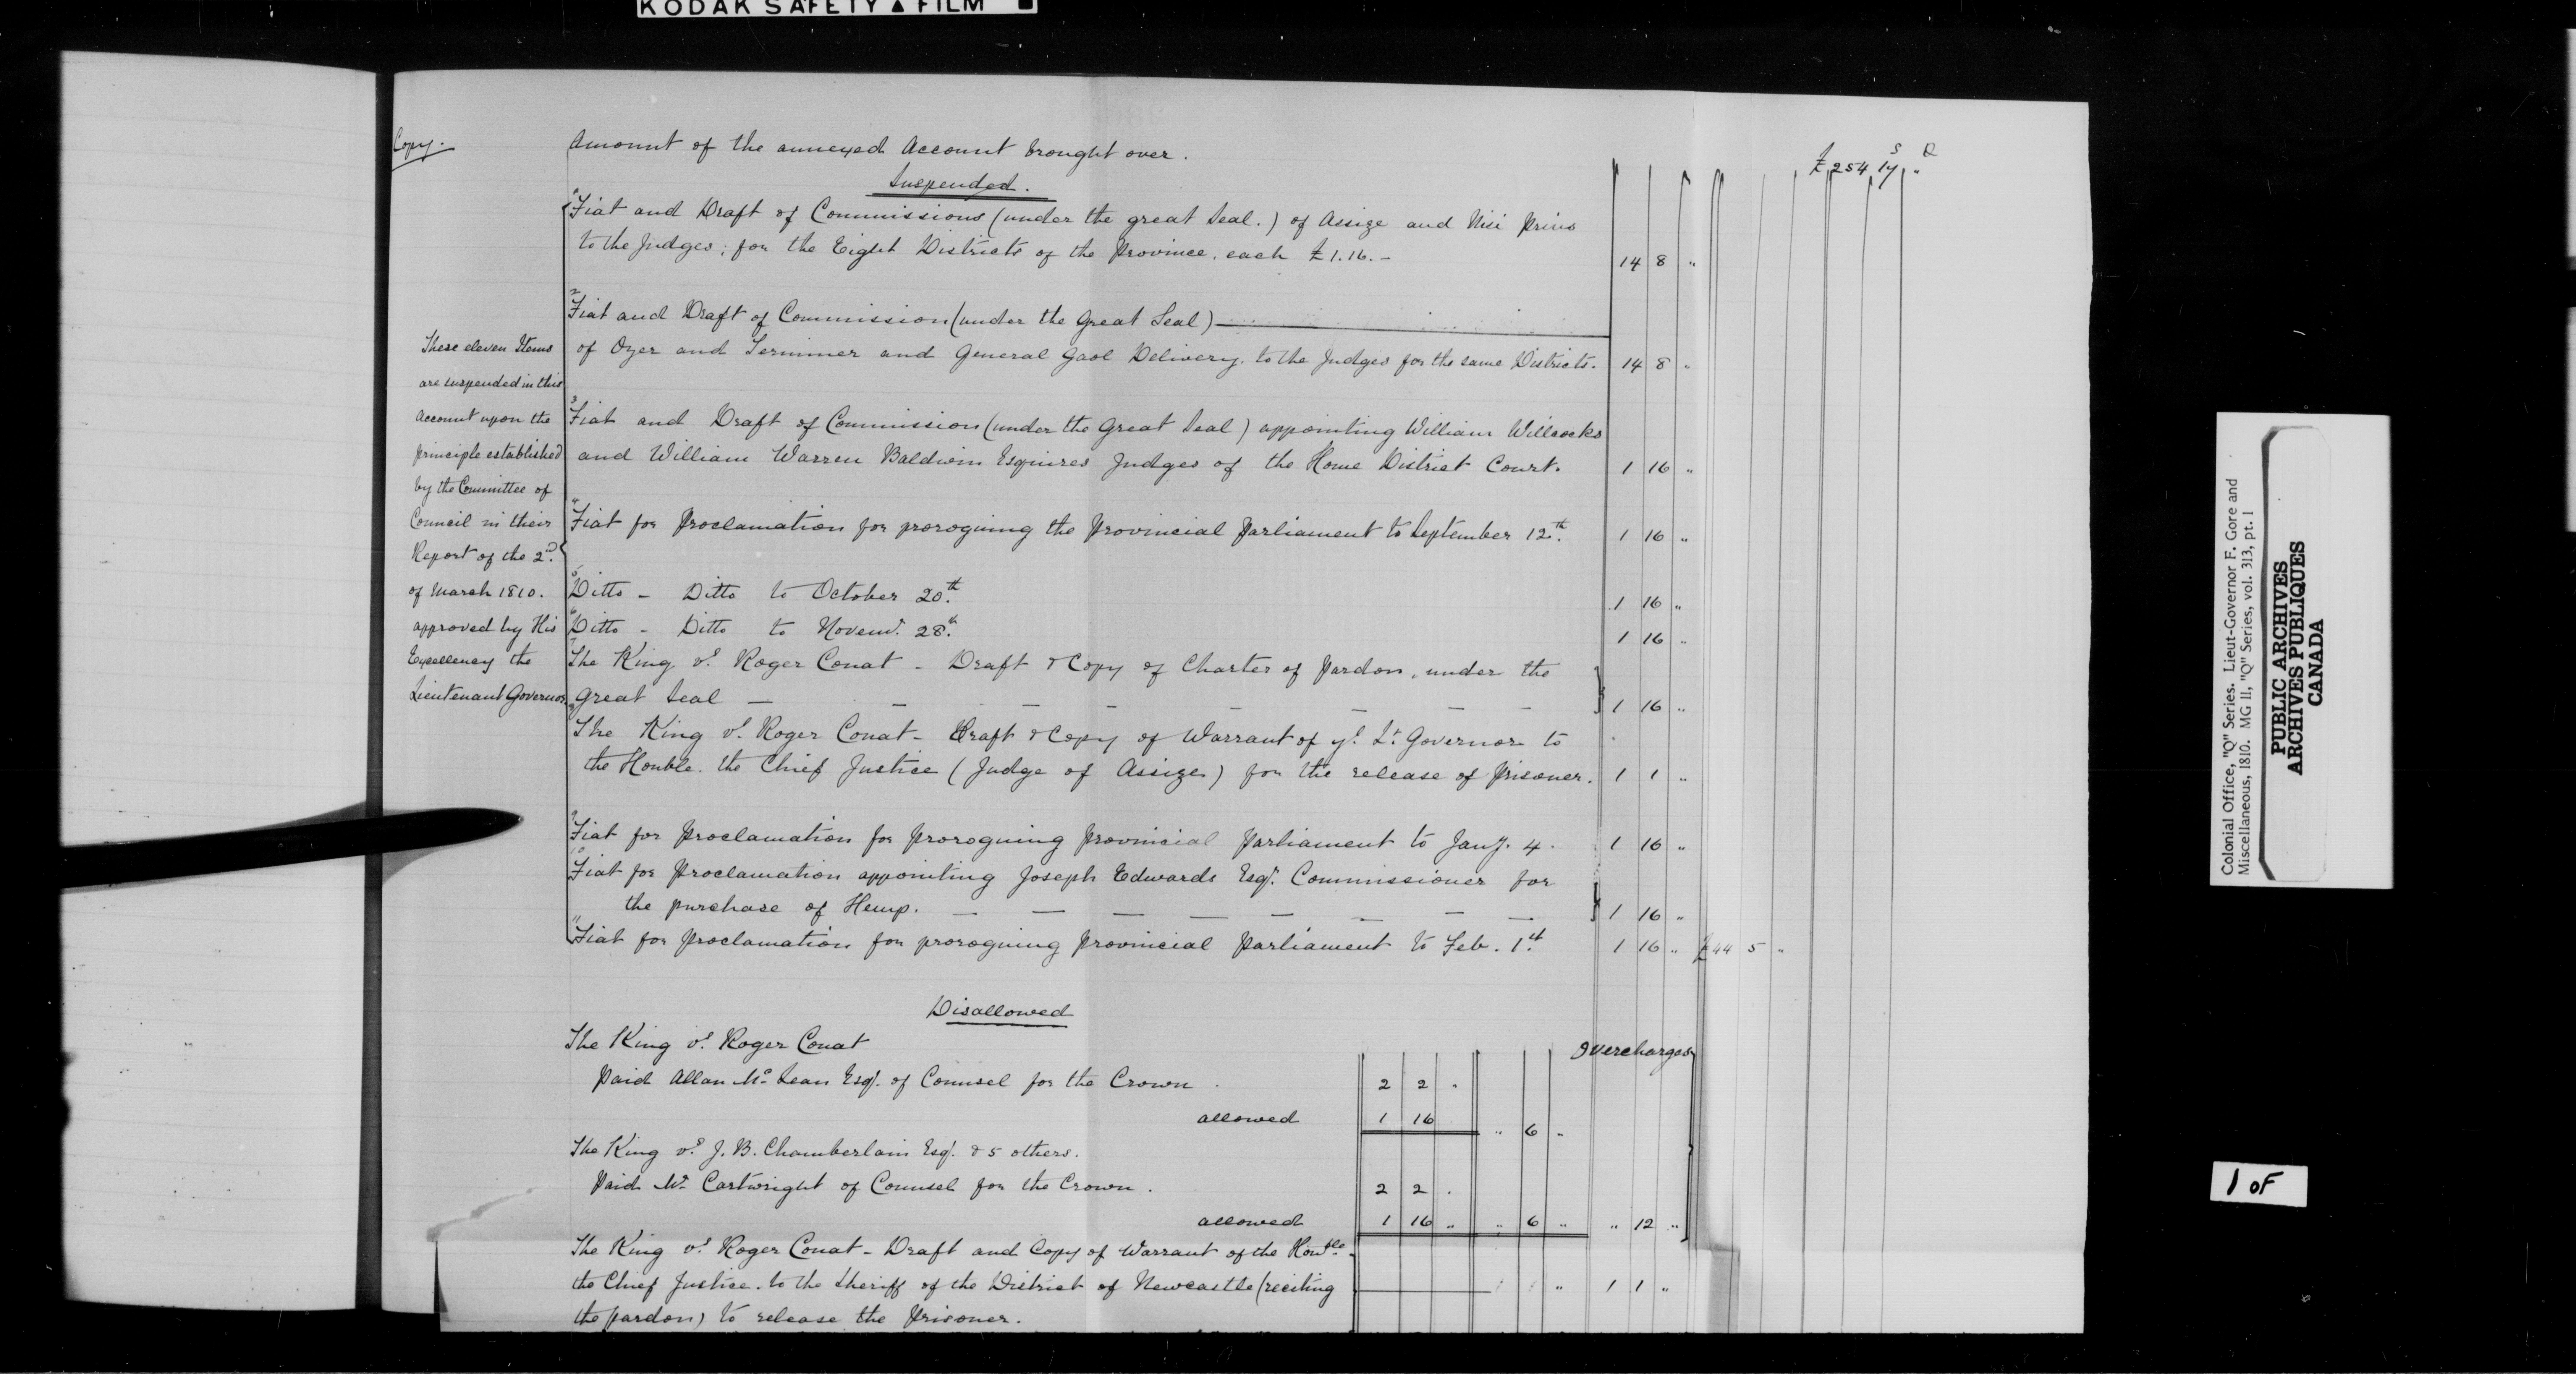 KODAK SAFETY ▲ FILM ■
Copy.
Amount of the annexed Account brought over.
£ 254 17 „
S D
Suspended.
1 Fiat and Draft of Commissions (under the great Seal.) of Assize and Nisi Prius
to the Judges; for the Eight Districts of the Province, each £1.16.– 14 8 „
2 Fiat and Draft of Commission (under the Great Seal)
of Oyer and Terminer and General Gaol Delivery, to the Judges for the same Districts. 14 8 „
3 Fiat and Draft of Commission (under the Great Seal) appointing William Willcocks
and William Warren Baldwin Esquires Judges of the Home District Court. 1 16 „
4 Fiat for Proclamation for proroguing the Provincial Parliament to September 12th. 1 16 „
5 Ditto – Ditto to October 20th. 1 16 „
6 Ditto – Ditto to Novemr. 28th. 1 16 „
7 The King vs. Roger Conat – Draft & Copy of Charter of Pardon, under the
Great Seal – – – – – – – – 1 16 „
The King vs. Roger Conat – Draft & Copy of Warrant of ye. Lt. Governor to
the Honble. the Chief Justice (Judge of Assize) for the release of Prisoner. 1 1 „
9 Fiat for Proclamation for Proroguing Provincial Parliament to Jany. 4. 1 16 „
10 Fiat for Proclamation appointing Joseph Edwards Esqr. Commissioner for
the purchase of Hemp. – – – – – – – – 1 16 „
11 Fiat for Proclamation for proroguing Provincial Parliament to Feb. 1st. 1 16 „ £44 5 „
These eleven Items
are suspended in this
Account upon the
principle established
by the Committee of
Council in their
Report of the 2nd.
of March 1810.
approved by His
Excellency the
Lieutenant Governor.
Disallowed
The King vs. Roger Conat
Overcharges
Paid Allan McLean Esqr. of Counsel for the Crown 2 2 „
allowed 1 16 „ 6 „
The King vs. J. B. Chamberlain Esqr. & 5 others.
Paid Mr Cartwright of Counsel for the Crown. 2 2 .
allowed 1 16 „ „ 6 „ „ 12 „
The King vs. Roger Conat – Draft and Copy of Warrant of the Honble.
the Chief Justice. to the Sheriff of the District of Newcastle (reciting 1 1 „
the pardon) to release the Prisoner.
Colonial Office, "Q" Series. Lieut-Governor F. Gore and
Miscellaneous, 1810. MG 11, "Q" Series, vol. 313, pt. 1
PUBLIC ARCHIVES
ARCHIVES PUBLIQUES
CANADA
1 OF